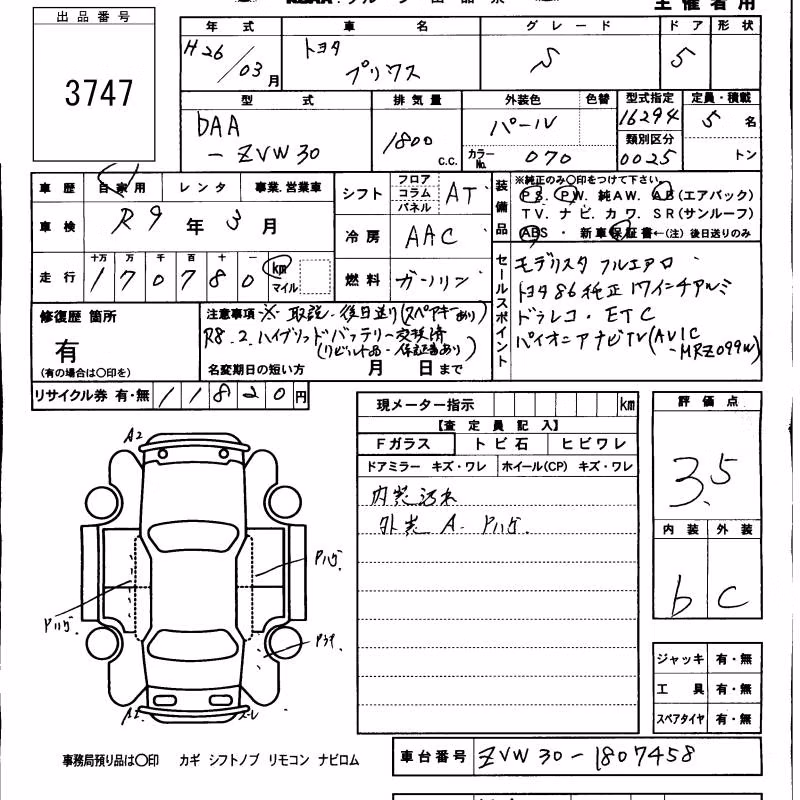 主催者用
出品番号
3747
年式 車名 グレード ドア 形状
H26/03月 トヨタ プリウス S 5
型式 排気量 外装色 色替 型式指定 定員・積載
DAA-ZVW30 1800 C.C. パール 16294 5名
カラーNo. 070 類別区分 0025 トン
車歴 自家用 レンタ 事業.営業車
車検 R9年3月
走行 十万 万 千 百 十 一
170780 km マイル
シフト フロア コラム パネル AT
冷房 AAC
燃料 ガソリン
装備品 ※純正のみ〇印をつけて下さい
PS. PW. 純AW. AB(エアバック)
TV. ナビ. カワ. SR(サンルーフ)
ABS・新車保証書←(注)後日送りのみ
セールスポイント
モデリスタ フルエアロ
トヨタ86純正17インチアルミ
ドラレコ・ETC
パイオニアナビTV(AVIC-MRZ099W)
修復歴 箇所
有
(有の場合は〇印を)
注意事項 ※ 取説・後日送り(スペアキーあり)
R8.2.ハイブリッドバッテリー交換済
(リビルト品・保証書あり)
名変期日の短い方 月 日まで
リサイクル券 有・無 11820円
現メーター指示 km
【査定員記入】
Fガラス トビ石 ヒビワレ
ドアミラー キズ・ワレ ホイール(CP) キズ・ワレ
内装汚れ
外装 A. Pハゲ.
評価点
3.5
内装 外装
b C
A2
Pハゲ.
Pハゲ.
ジャッキ 有・無
工具 有・無
スペアタイヤ 有・無
事務局預り品は〇印 カギ シフトノブ リモコン ナビロム
車台番号 ZVW30-1807458